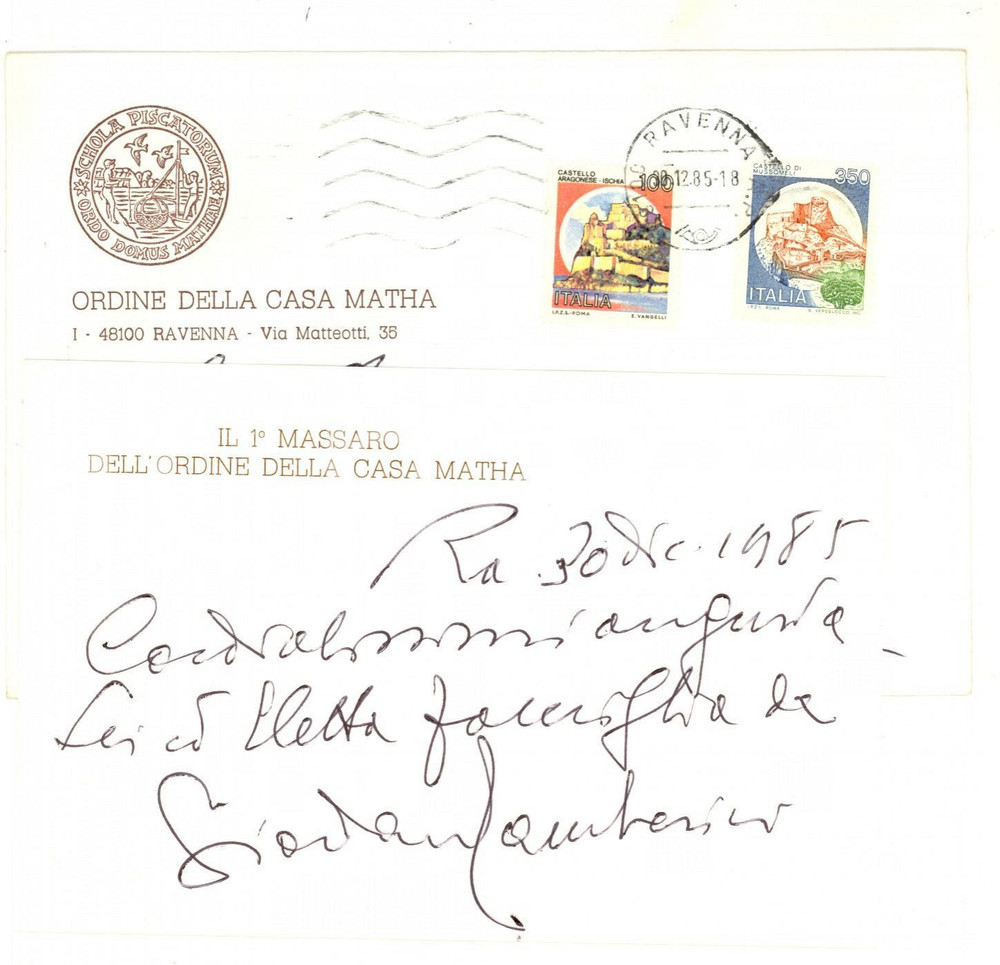 SCHOLA PISCATORUM
ORDO DOMUS MATHAE
ORDINE DELLA CASA MATHA
I - 48100 RAVENNA - Via Matteotti, 35
RAVENNA
12.85-18
CASTELLO
ARAGONESE - ISCHIA
100
ITALIA
I.P.Z.S.-ROMA
E. VANGELLI
CASTELLO DI
MUSSOMELI
350
ITALIA
I.P.Z.S. ROMA
IL 1º MASSARO
DELL'ORDINE DELLA CASA MATHA
Ra. 30 dic. 1985
Cordialissimi auguri a
Lei ed Eletta famiglia da